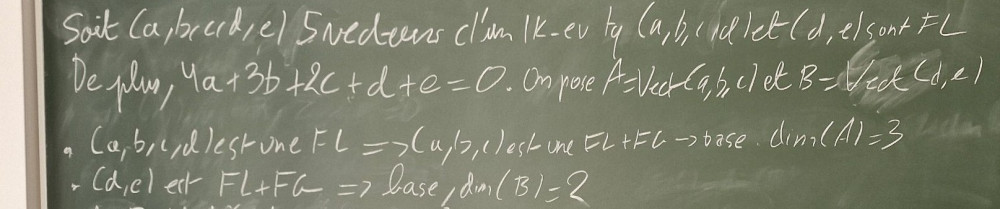 Soit (a,b,c,d,e) 5 vecteurs d'un IK-ev tq (a,b,c,d) et (d,e) sont FL
De plus, 4a+3b+2c+d+e=0. On pose A=Vect(a,b,c) et B=Vect(d,e)
• (a,b,c,d) est une FL => (a,b,c) est une FL+FG → base. dim(A)=3
• (d,e) est FL+FG => base, dim(B)=2